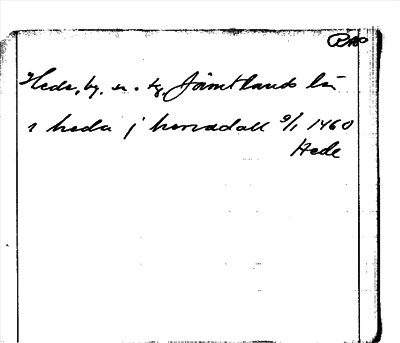 Hede, by, sn. tg. Jämtlands län
i heda j heriadall 9/1 1460
Hede